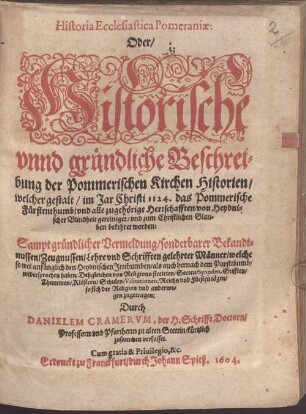 Historia Ecclesiastica Pomeraniæ:
Oder/
Historische
vnnd gründliche Beschrei-
bung der Pommerischen Kirchen Historien/
welcher gestalt/ im Jar Christi 1124. das Pommerische
Fürstenthumb/ vnd alle zugehörige Herrschafften/ von Heydni-
scher Blindheit gereiniget/ vnd zum Christlichen Glau-
ben bekehret worden:
Sampt gründlicher Vermeldung/ sonderbarer Bekandt-
nussen/ Zeugnussen/ Lehre vnd Schrifften gelehrter Männer/ welche
so wol anfänglich den Heydnischen Irrthumben als auch hernach dem Papsthumb
widersprochen haben: Deßgleichen von
Thummen/ Klöstern/ Schulen/ Visitationen/ Reichs vnd Fürstentägen/
so sich der Religion vnd anderwe-
gen zugetragen:
Durch
DANIELEM CRAMERVM, der H. Schrifft Doctorn/
Professorn vnd Pfarrherrn zu alten Stettin/ kürtzlich
zusammen verfasset.
Cum gratia & Priuilegio, &c.
Gedruckt zu Franckfurt/ durch Johann Spieß. 1604.